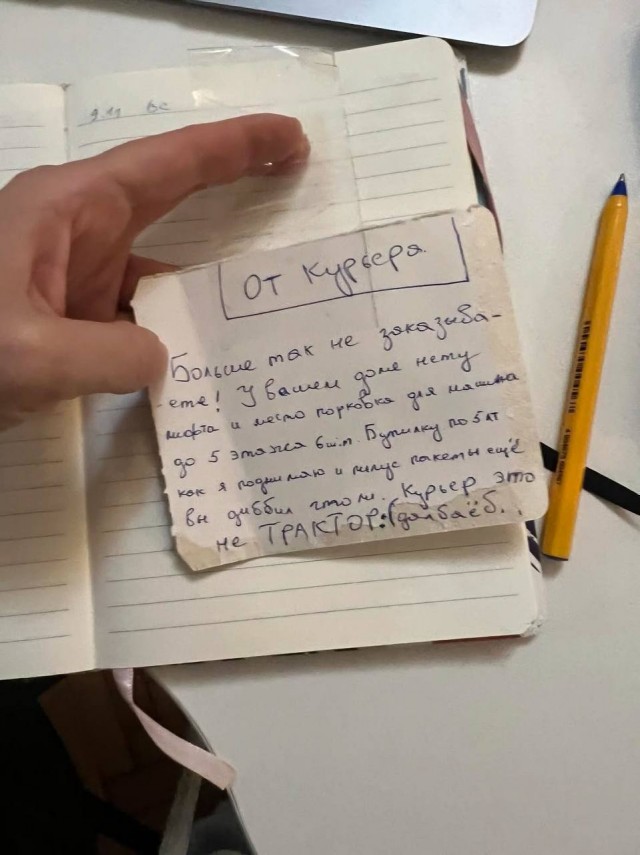 9.11 Вс
От Курьера
Больше так не заказыва-
-ете! У вашем доме нету
лифта и место порковка для машина
до 5 этажа 6 ш.п. Бутилку по 5 лт
как я поднимаю и плюс пакеты ещё
вы
Курьер это
не ТРАКТОР:(далбаёб..